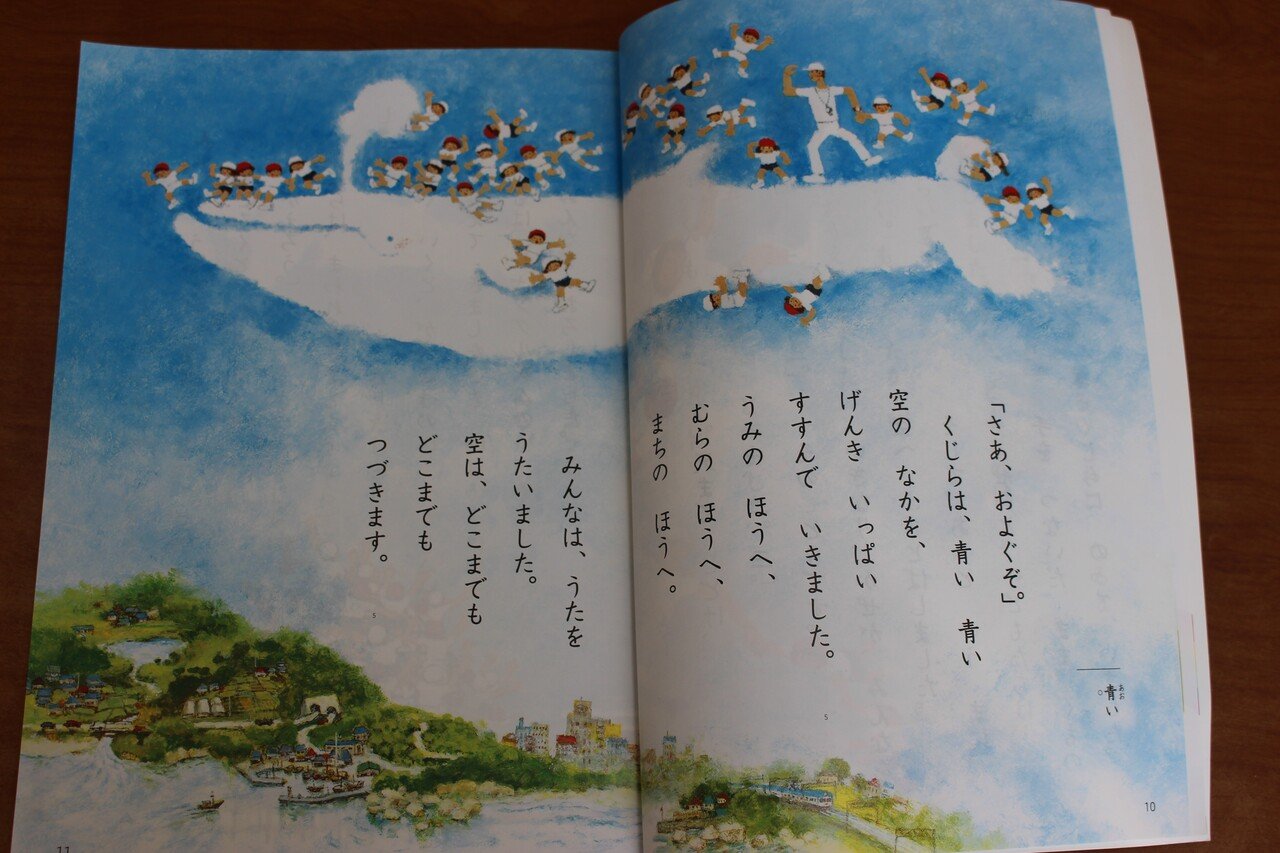 「さあ、およぐぞ。」
くじらは、青い 青い
空の なかを、
げんき いっぱい
すすんで いきました。
うみの ほうへ、
むらの ほうへ、
まちの ほうへ。
5
青い
あお
10
みんなは、うたを
うたいました。
空は、どこまでも
どこまでも
つづきます。
5
11